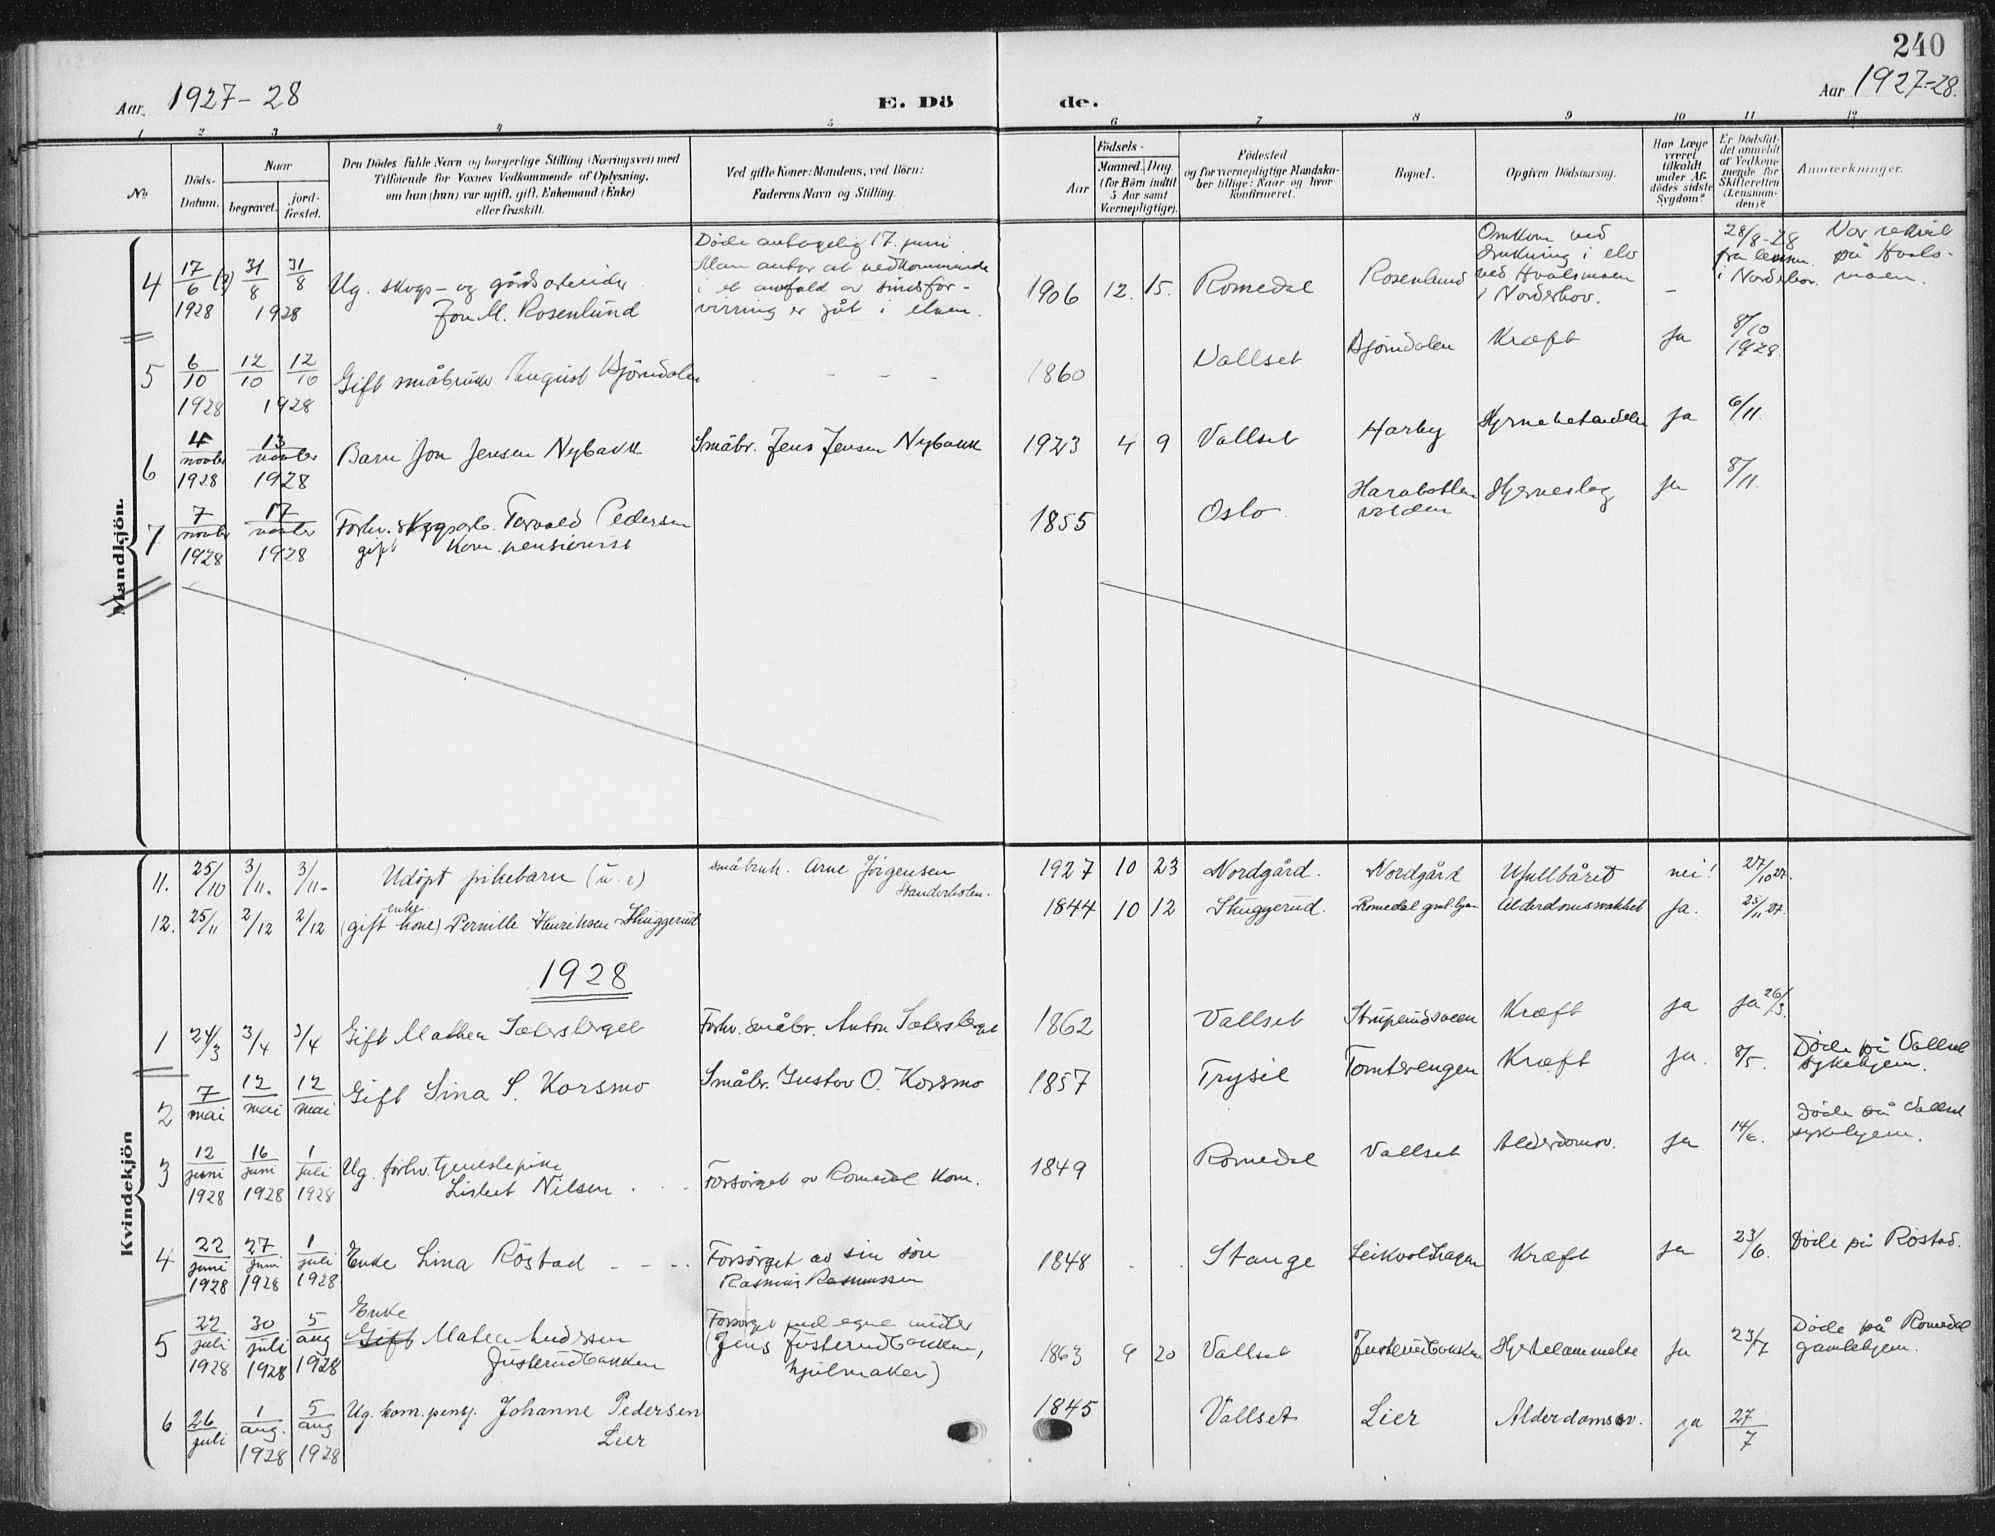 240
Aar 1927-28
E. Dö de.
Aar 1927-28.
1 2 3 4 5 6 7 8 9 10 11 12
No
Döds-Datum.
Naar
begravet.
jord-fæstet.
Den Dödes fulde Navn og borgerlige Stilling (Næringsvei) med
Tilföiende for Voxnes Vedkommende af Oplysning,
om han (hun) var ugift, gift, Enkemand (Enke)
eller fraskilt.
Ved gifte Koner: Mandens, ved Börn:
Faderens Navn og Stilling.
Födsels-
Aar
Maaned. Dag.
(for Börn indtil
5 Aar samt
Værnepligtige).
Födested
og for værnepligtige Mandska-
ber tillige: Naar og hvor
konfirmeret.
Bopæl.
Opgiven Dödsaarsag.
Har Læge
været
tilkaldt
under Af-
dödes sidste
Sygdom?
Er Dödsfal-
det anmeldt
af Vedkom-
mende for
Skifteretten
(Lensman-
den)?
Anmærkninger.
Mandkjön.
4 17/6 (?) 1928 31/8 31/8 1928
Ug. skogs- og gårdsarbeider
Jon M. Rosenlund
Döde antagelig 17. juni
Man antar at vedkommende
i et anfald av sinsfor-
virring er gåt i elven.
1906 12. 15. Romedal Rosenlund
Omkom ved
drukning i elv
ved Hvalsmoen
i Norderhov.
-
28/8-28
fra lensm.
i Norderhov.
Var rekrut
på Hvals-
moen.
5 6/10 1928 12/10 12/10 1928
Gift småbruker August Björndalen - - - -
1860 Vallset Björndalen Kræft ja 8/10 1928.
6 4/novbr 1928 13/novbr 1928
Barn Jon Jensen Nybakk
Småbr. Jens Jensen Nybakk
1923 4 9 Vallset Harby ja 6/11.
7 7/novbr 1928 17/novbr 1928
Forhv. skogsarb. Torvald Pedersen
gift kom. pensionist
1855 Oslo Hjerneslag ja 8/11.
Kvindekjön
11. 25/10 3/11. 3/11.
Udöpt pikebarn (u. e)
småbruk. Arne Jörgensen
1927 10 23 Nordgård. Nordgård Ufullbåret nei! 27/10 27.
12. 25/11 2/12 2/12
enke
(gift kone) Pernille Henriksen Skuggerud
1844 10 12 Skuggerud. Romedal gml.hjem Alderdomssvakhet ja. 25/11 27.
1928
1 24/3 3/4 3/4
Gift Mathea Sætersberget
Forhv. småbr. Anton Sætersberget
1862 Vallset Kræft ja ja 26/3.
2 7/mai 12/mai 12/mai
Gift Lina S. Korsmo
Småbr. Gustav O. Korsmo
1857 Trysil Tomterengen Kræft ja. 8/5.
Döde på Vallset
sykehjem.
3 12/juni 1928 16/juni 1928 1/juli 1928
Ug. forhv. tjenestepike
Lisbet Nilsen . .
Forsörget av Romedal kom.
1849 Romedal Vallset Alderdomsv. ja 14/6.
Döde på Vallset
sykehjem.
4 22/juni 1928 27/juni 1928 1/juli 1928
Enke Lina Röstad - - - .
Forsörget av sin sön
Rasmus Rasmussen
1848 . . Stange Leikvoldhagen Kræft ja 23/6.
Döde på Röstad.
5 22/juli 1928 30/juli 1928 5/aug 1928
Enke
Gift Mathea Andersen
Justerudbakken
Forsörget ved egne midler
(Jens Justerudbakken,
hjulmaker)
1863 9 20 Vallset Justerudbakken Hjertelammelse ja 23/7
Döde på Romedal
gamlehjem.
6 26/juli 1/aug. 1928 5/aug 1928
Ug. kom. pensj. Johanne Pedersen
Lier
1845 Vallset Lier Alderdomsv. ja 27/7